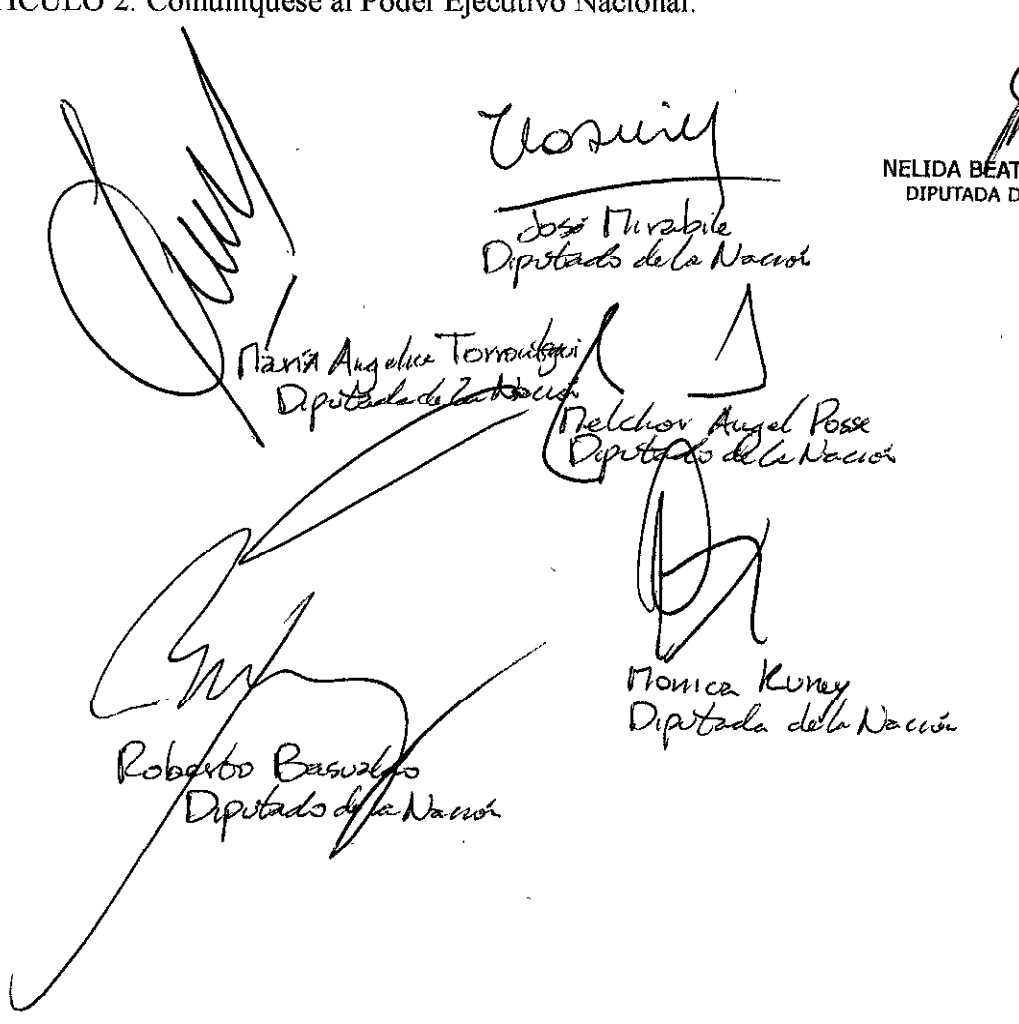 TICULO 2: Comuníquese al Poder Ejecutivo Nacional.
NELIDA BEAT
DIPUTADA D
José Mirabile
Diputado de la Nación
María Angelica Torrontegui
Diputada de la Nación
Melchor Angel Posse
Diputado de la Nación
Monica Kuney
Diputada de la Nación
Roberto Basualdo
Diputado de la Nación